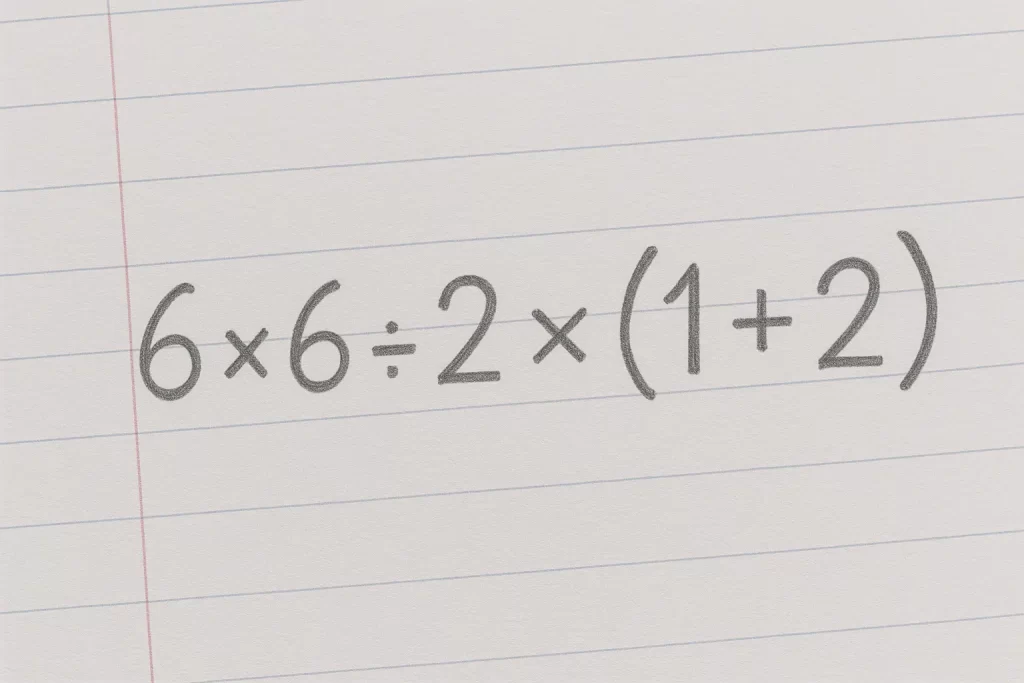 6×6÷2×(1+2)